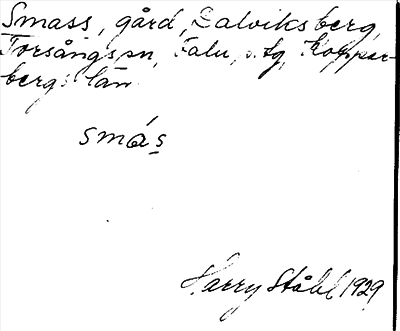 Smass, gård, Dalviksberg,
Torsångs sn, Falu, s. tg, Koppar-
bergs län.
smás
Harry Ståhl 1929